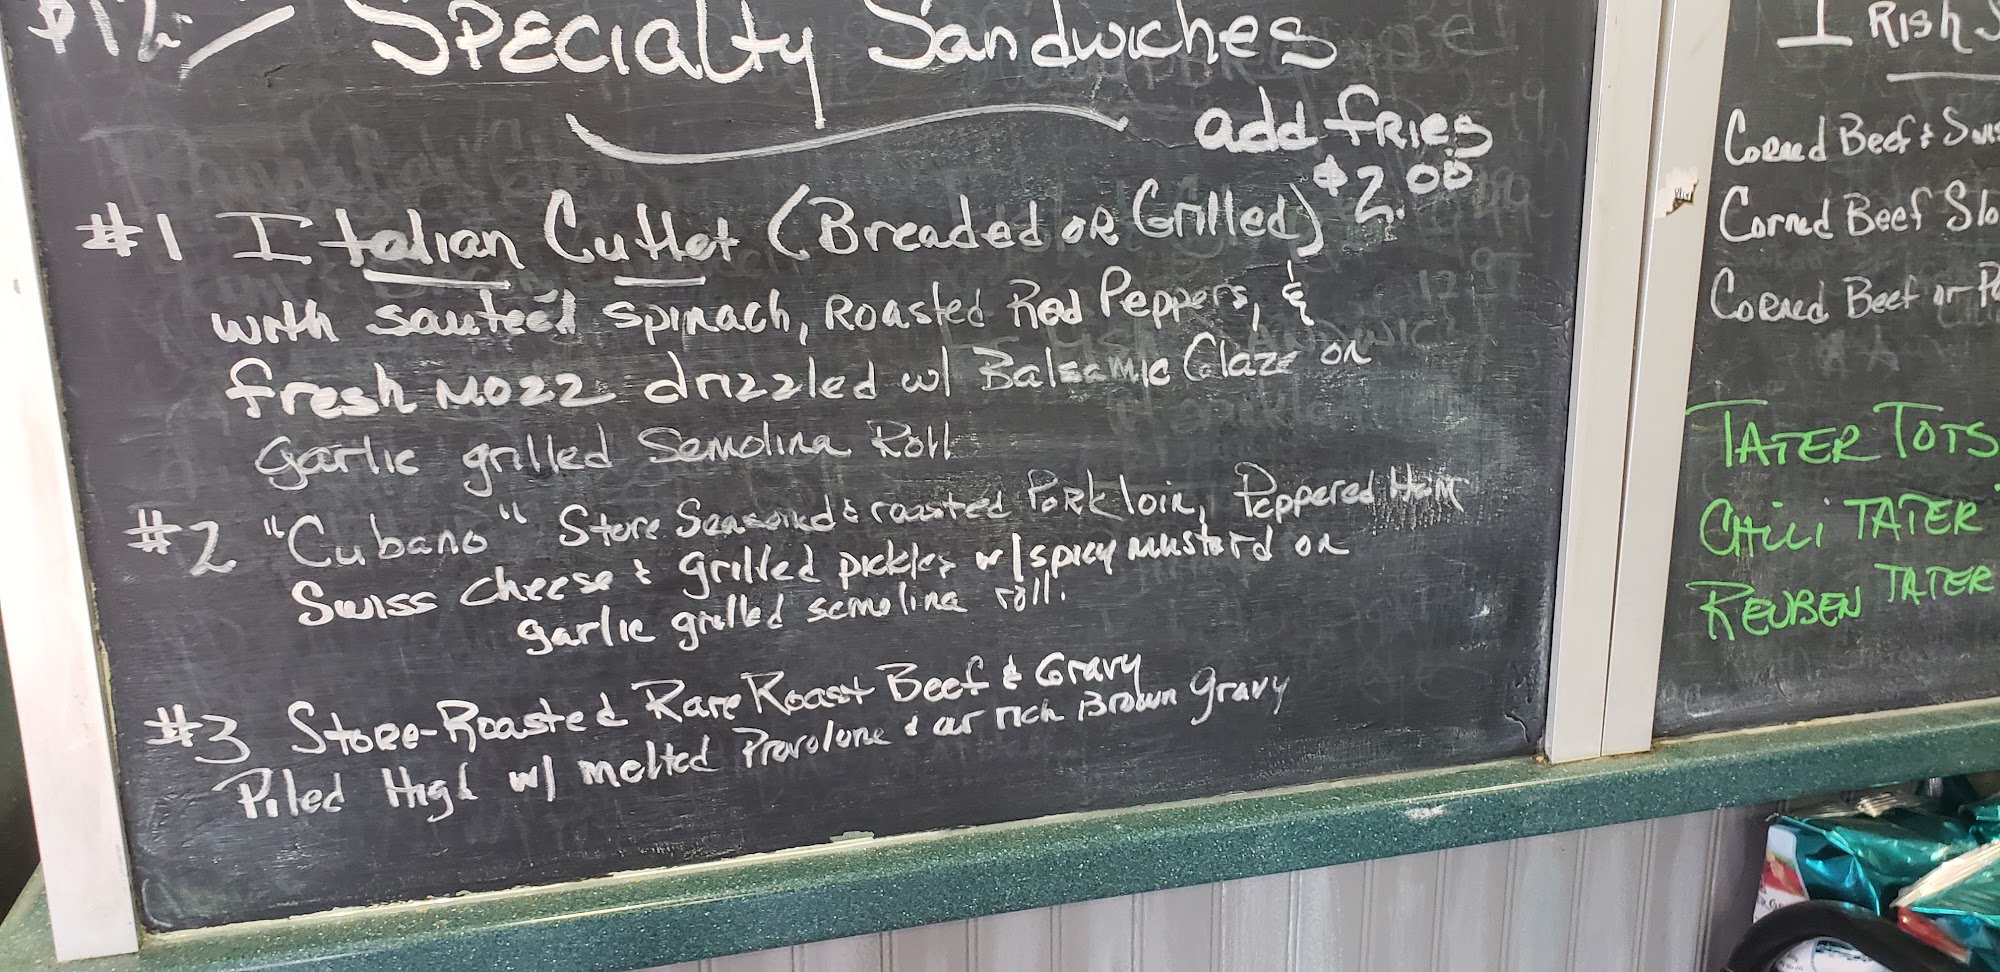 Specialty Sandwiches
add fries
$2.00
#1 Italian Cutlet (Breaded or Grilled)
with sauteéd spinach, Roasted Red Peppers, &
fresh mozz drizzled w/ Balsamic Glaze on
garlic grilled Semolina Roll
#2 "Cubano" Store Seasoned & roasted Pork loin, Peppered Ham
Swiss cheese & grilled pickles w/ spicy mustard on
garlic grilled semolina roll.
#3 Store-Roasted Rare Roast Beef & Gravy
Piled High w/ melted Provolone & our rich Brown gravy
Irish
Corned Beef &
Corned Beef
Corned Beef or
TATER TOTS
CHILI TATER
REUBEN TATER